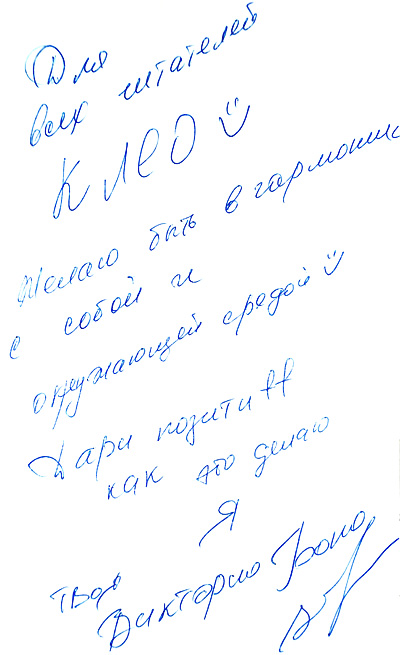 Для
всех читателей
КЛЕО
Желаю быть в гармонии
с собой и
окружающей средой
Дари позитифф
как это делаю
Я
твоя
Виктория Боня